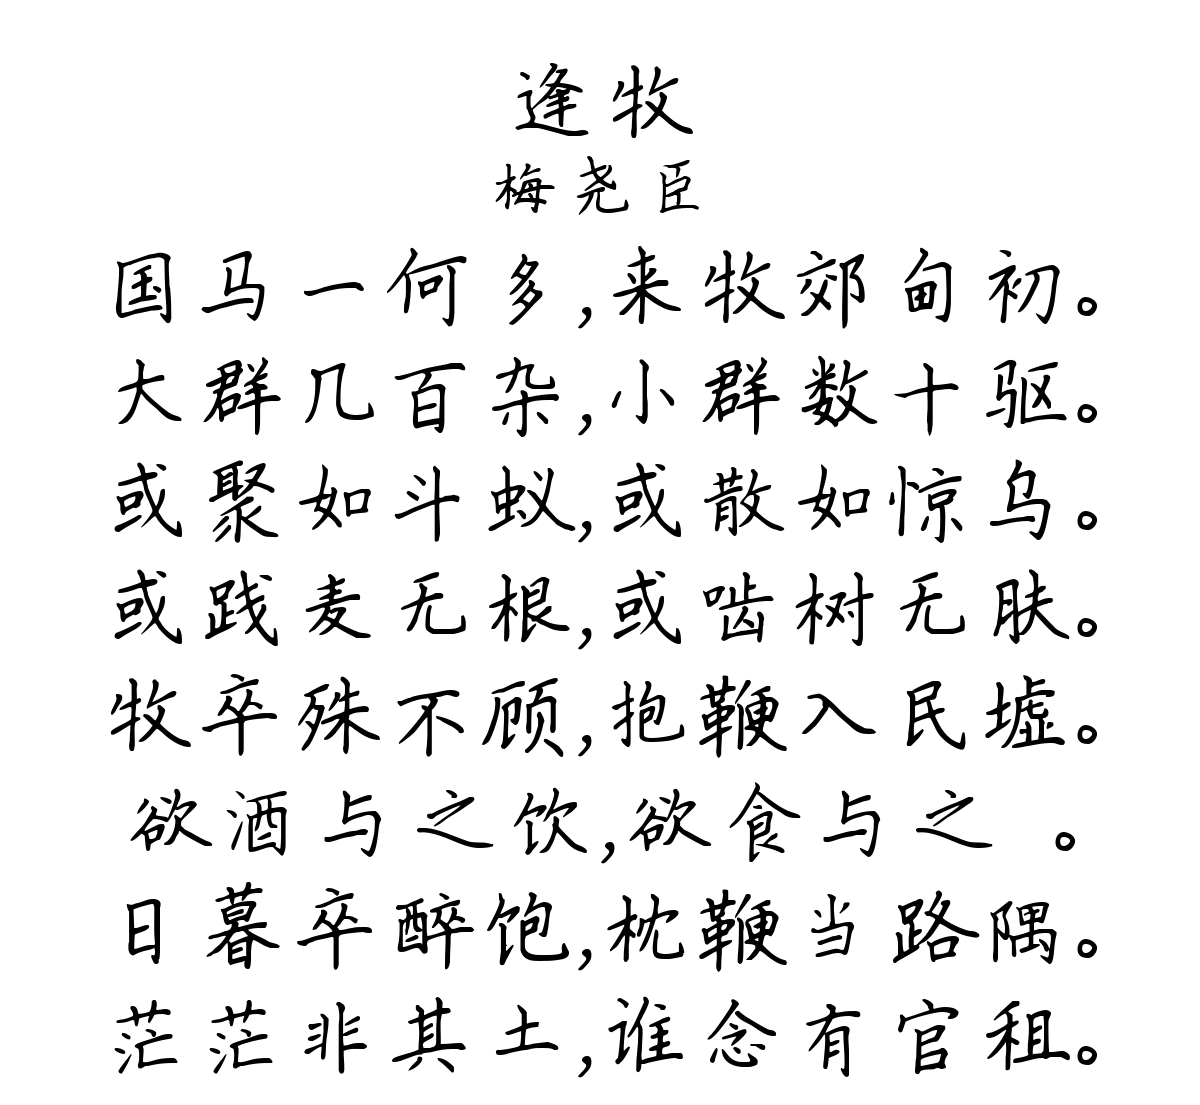 逢牧
梅尧臣
国马一何多,来牧郊甸初。
大群几百杂,小群数十驱。
或聚如斗蚁,或散如惊乌。
或践麦无根,或啮树无肤。
牧卒殊不顾,抱鞭入民墟。
欲酒与之饮,欲食与之 。
日暮卒醉饱,枕鞭当路隅。
茫茫非其土,谁念有官租。